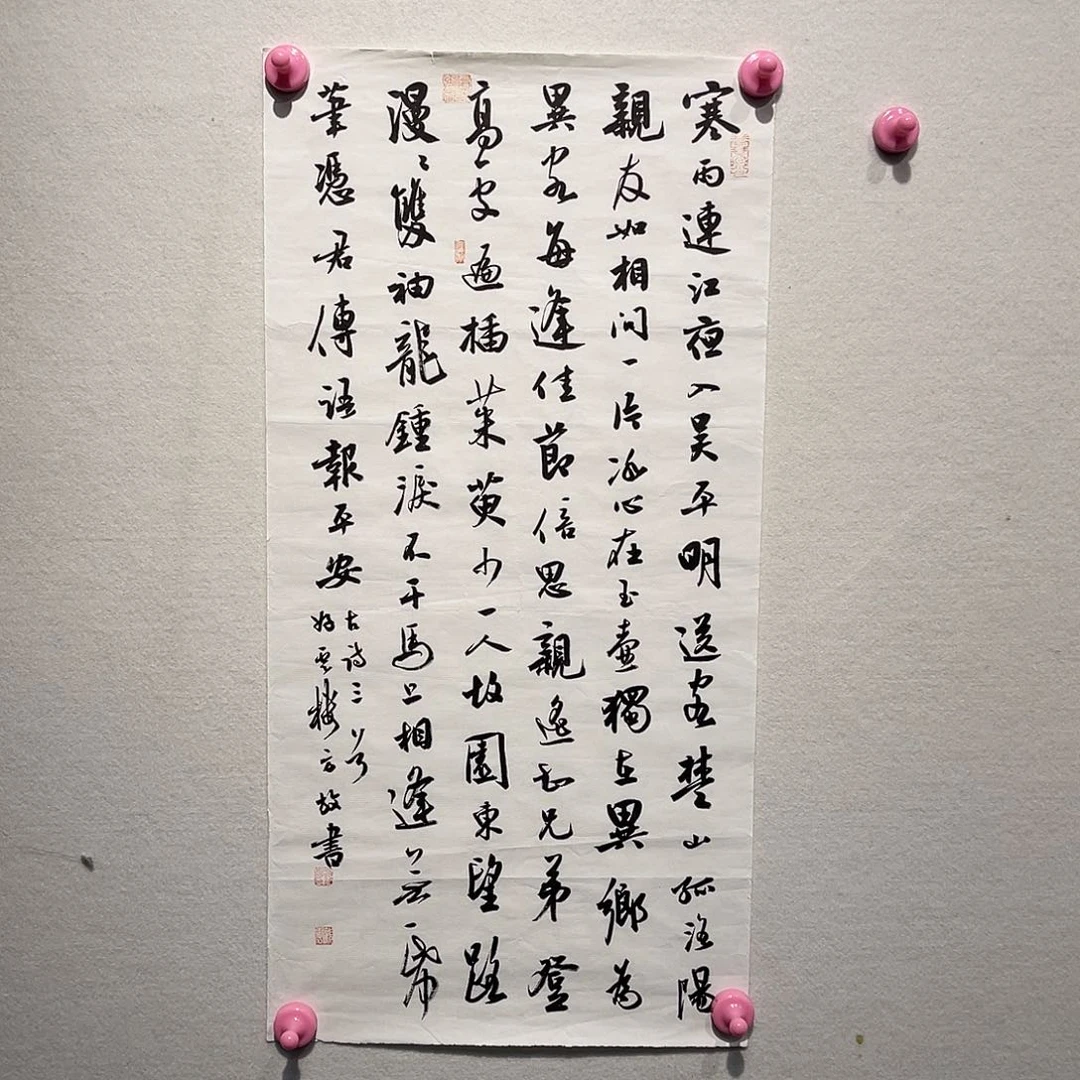 寒雨連江夜入吳平明送客楚山孤洛陽
親友如相問一片冰心在玉壺獨在異鄉為
異客每逢佳節倍思親遙知兄弟登
高處遍插茱萸少一人故園東望路
漫〻雙袖龍鍾淚不干馬上相逢無帋
筆憑君傳語報平安
古詩三首
好雲樓方書